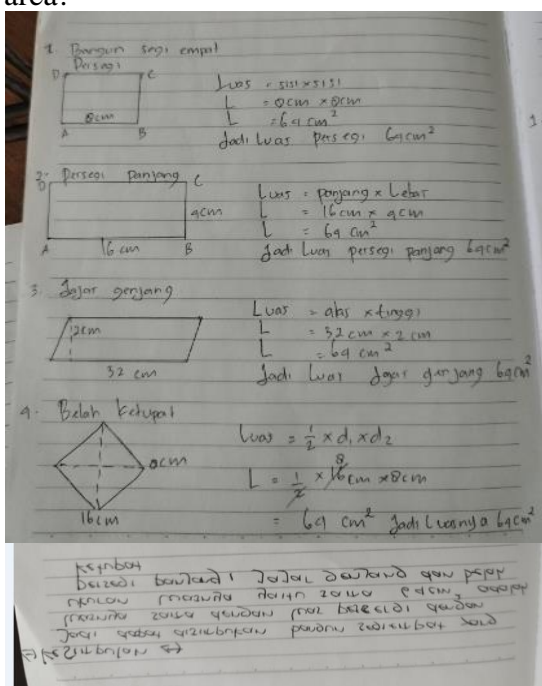 area?
1. Bangun segi empat
Persegi
D C
8cm
A B
Luas = sisi × sisi
L = 8cm × 8cm
L = 64 cm²
Jadi Luas persegi 64cm²
2. Persegi panjang
D C
4cm
A 16 cm B
Luas = panjang × Lebar
L = 16cm × 4cm
L = 64 cm²
Jadi Luas persegi panjang 64cm²
3. Jajar genjang
2cm
32 cm
Luas = alas × tinggi
L = 32 cm × 2 cm
L = 64 cm²
Jadi Luas Jajar genjang 64cm²
4. Belah ketupat
8cm
16cm
Luas = 1/2 × d1 × d2
L = 1/2 × 16cm × 8cm
8
= 64 cm² Jadi Luasnya 64cm²
Jadi dapat disimpulkan bangun segiempat yang
luasnya sama dengan luas persegi dengan
luasnya yaitu sama adalah
persegi panjang, jajar genjang dan belah
ketupat